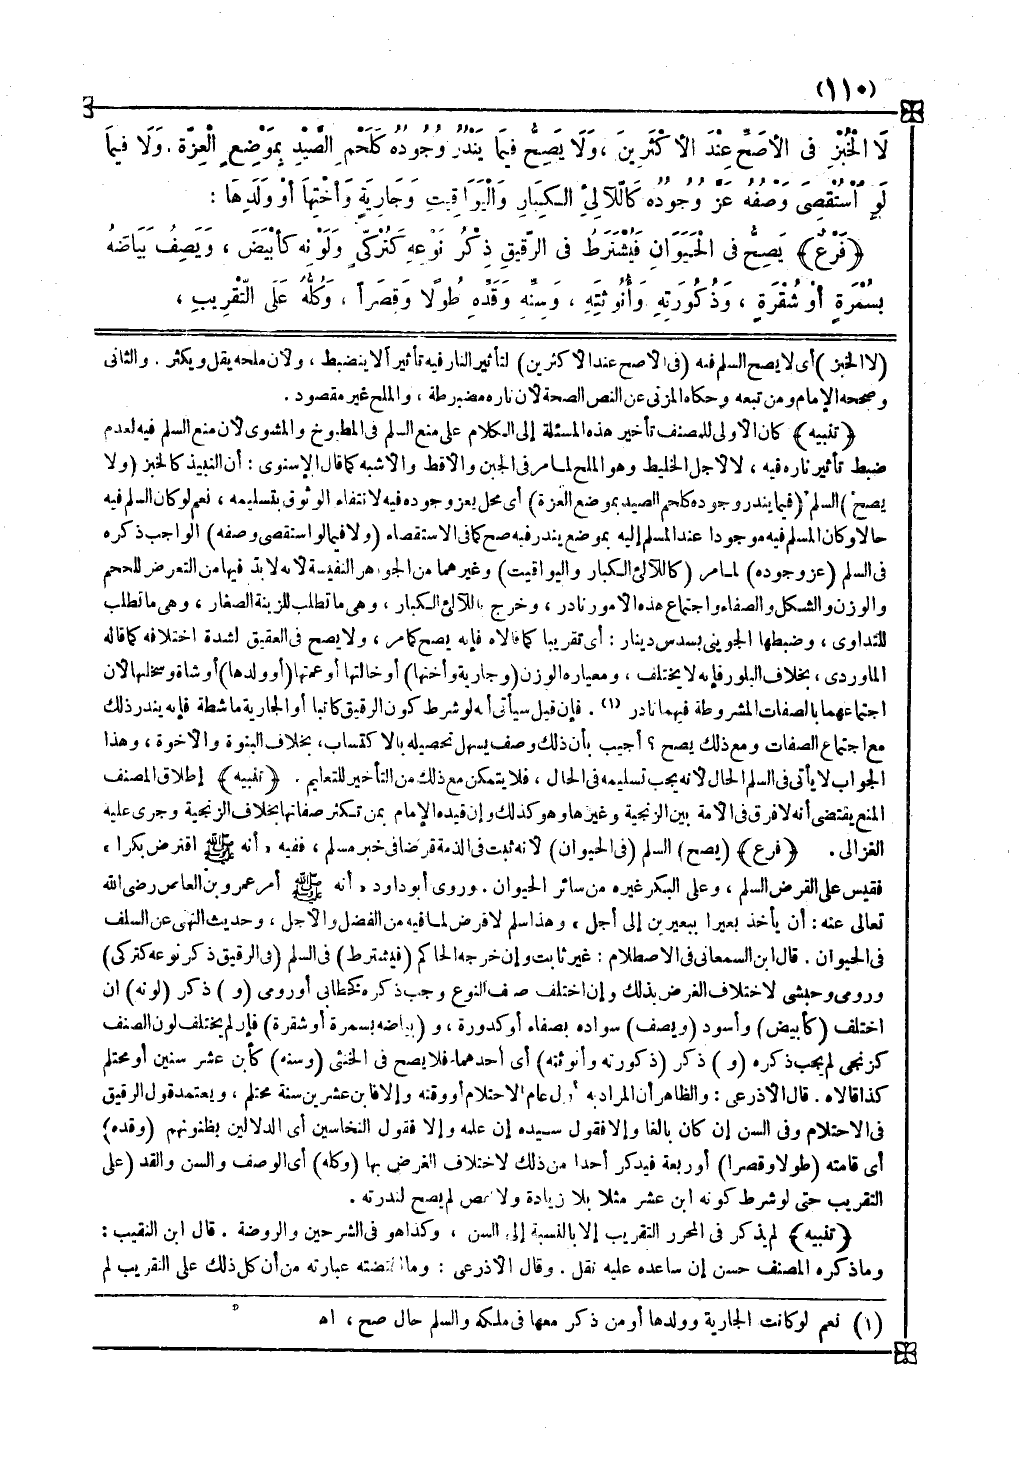 (١١٠)
لَا الْخُبْزِ فِى الأَصَحِّ عِنْدَ الأَكْثَرِينَ ، وَلَا يَصِحُّ فِيمَا يَنْدُرُ وُجُودُهُ كَلَحْمِ الصَّيْدِ بِمَوْضِعِ الْعِزَّةِ . وَلَا فِيمَا
لَوِ اُسْتُقْصِىَ وَصْفُهُ عَزَّ وُجُودُهُ كَالَّلآلِئِ الْكِبَارِ وَالْيَوَاقِيتِ وَجَارِيَةٍ وَأُخْتِهَا أَوْ وَلَدِهَا :
﴿ فَرْعٌ ﴾ يَصِحُّ فِى الْحَيَوَانِ فَيُشْتَرَطُ فِى الرَّقِيقِ ذِكْرُ نَوْعِهِ كَتُرْكِىٍّ وَلَوْنِهِ كَأَبْيَضَ ، وَيَصِفُ بَيَاضَهُ
بِسُمْرَةٍ أَوْ شُقْرَةٍ ، وَذُكُورَتِهِ وَأُنُوثَتِهِ ، وَسِنِّهِ وَقَدِّهِ طُولًا وَقِصَراً ، وَكُلُّهُ عَلَى التَّقْرِيبِ ،
(لا الخبز) أى لا يصح السلم فيه (فى الأصح عند الأكثرين) لتأثير النار فيه تأثيراً لا ينضبط ، ولأن ملحه يقل ويكثر . والثانى
وصححه الإمام ومن تبعه وحكاه المزنى عن النص الصحة لأن ناره مضبوطة ، والملح غير مقصود .
﴿ تنبيه ﴾ كان الأولى للمصنف تأخير هذه المسئلة إلى الكلام على منع السلم فى المطبوخ والمشوى لأن منع السلم فيه لعدم
ضبط تأثير ناره فيه ، لا لأجل الخليط وهو الملح لما مر فى الجبن والأقط والأشبه كما قال الإسنوى : أن النبيذ كالخبز (ولا
يصح) السلم (فيما يندر وجوده كلحم الصيد بموضع العزة) أى محل يعز وجوده فيه لانتفاء الوثوق بتسليمه ، نعم لو كان السلم فيه
حالا وكان المسلم فيه موجودا عند المسلم إليه بموضع يندر فيه صح كما فى الاستقصاء (ولا فيما لو استقصى وصفه) الواجب ذكره
فى السلم (عز وجوده) لما مر (كاللآلئ الكبار واليواقيت) وغيرهما من الجواهر النفيسة لأنه لابد فيها من التعرض للحجم
والوزن والشكل والصفاء واجتماع هذه الأمور نادر ، وخرج باللآلئ الكبار ، وهى ما تطلب للزينة الصغار ، وهى ما تطلب
للتداوى ، وضبطها الجوينى بسدس دينار : أى تقريبا كما قالاه فإنه يصح كما مر ، ولا يصح فى العقيق لشدة اختلافه كما قاله
الماوردى ، بخلاف البلور فإنه لا يختلف ، ومعياره الوزن (وجارية وأختها) أو خالتها أو عمتها (أو ولدها) أو شاة وسخلتها لأن
اجتماعهما بالصفات المشروطة فيهما نادر (١) . فإن قيل سيأتى أنه لو شرط كون الرقيق كاتبا أو الجارية ماشطة فإنه يندر ذلك
مع اجتماع الصفات ومع ذلك يصح ؟ أجيب بأن ذلك وصف يسهل تحصيله بالاكتساب، بخلاف البنوة والأخوة ، وهذا
الجواب لا يأتى فى السلم الحال لأنه يجب تسليمه فى الحال ، فلا يتمكن مع ذلك من التأخير للتعليم . ﴿ تنبيه ﴾ إطلاق المصنف
المنع يقتضى أنه لا فرق فى الأمة بين الزنجية وغيرها وهو كذلك وإن قيده الإمام بمن تكثر صفاتها بخلاف الزنجية وجرى عليه
الغزالى . ﴿ فرع ﴾ (يصح) السلم (فى الحيوان) لأنه ثبت فى الذمة قرضا فى خبر مسلم ، ففيه « أنه ﷺ اقترض بكرا »
فقيس على القرض السلم ، وعلى البكر غيره من سائر الحيوان . وروى أبو داود « أنه ﷺ أمر عمرو بن العاص رضى الله
تعالى عنه : أن يأخذ بعيرا ببعيرين إلى أجل » وهذا سلم لا قرض لما فيه من الفضل والأجل ، وحديث النهى عن السلف
فى الحيوان . قال ابن السمعانى فى الاصطلام : غير ثابت وإن خرجه الحاكم (فيشترط) فى السلم (فى الرقيق ذكر نوعه كتركى)
ورومى وحبشى لاختلاف الغرض بذلك وإن اختلف صنف النوع وجب ذكره كخطابى أو رومى (و) ذكر (لونه) ان
اختلف (كأبيض) وأسود (ويصف) سواده بصفاء أو كدورة ، و (بياضه بسمرة أو شقرة) فإن لم يختلف لون الصنف
كزنجى لم يجب ذكره (و) ذكر (ذكورته وأنوثته) أى أحدهما فلا يصح فى الخنثى (وسنه) كأبن عشر سنين أو محتلم
كذا قالاه . قال الأذرعى : والظاهر أن المراد به أول عام الاحتلام أو وقته وإلا فابن عشرين سنة محتلم ، ويعتمد قول الرقيق
فى الاحتلام وفى السن إن كان بالغا وإلا فقول سيده إن علمه وإلا فقول النخاسين أى الدلالين بظنونهم (وقده)
أى قامته (طولا وقصرا) أو ربعة فيذكر أحدا من ذلك لاختلاف الغرض بها (وكله) أى الوصف والسن والقد (على
التقريب حتى لو شرط كونه ابن عشر مثلا بلا زيادة ولا نقص لم يصح لندرته .
﴿ تنبيه ﴾ لم يذكر فى المحرر التقريب إلا بالنسبة إلى السن ، وكذا هو فى الشرحين والروضة . قال ابن النقيب :
وما ذكره المصنف حسن إن ساعده عليه نقل . وقال الأذرعى : وما اقتضته عبارته من أن كل ذلك على التقريب لم
(١) نعم لو كانت الجارية وولدها أو من ذكر معها فى ملكه والسلم حال صح ، اﻫ